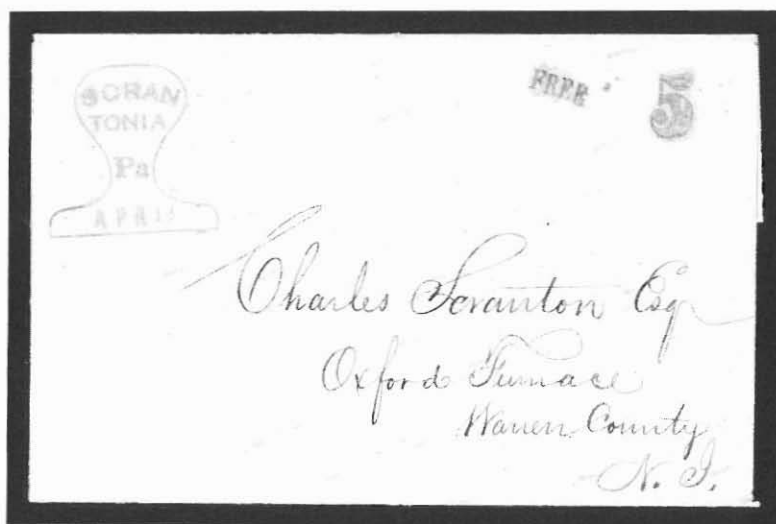 SCRAN
TONIA
Pa
FREE
5
Charles Scranton Esq
Oxford Furnace
Warren County
N. J.
APR